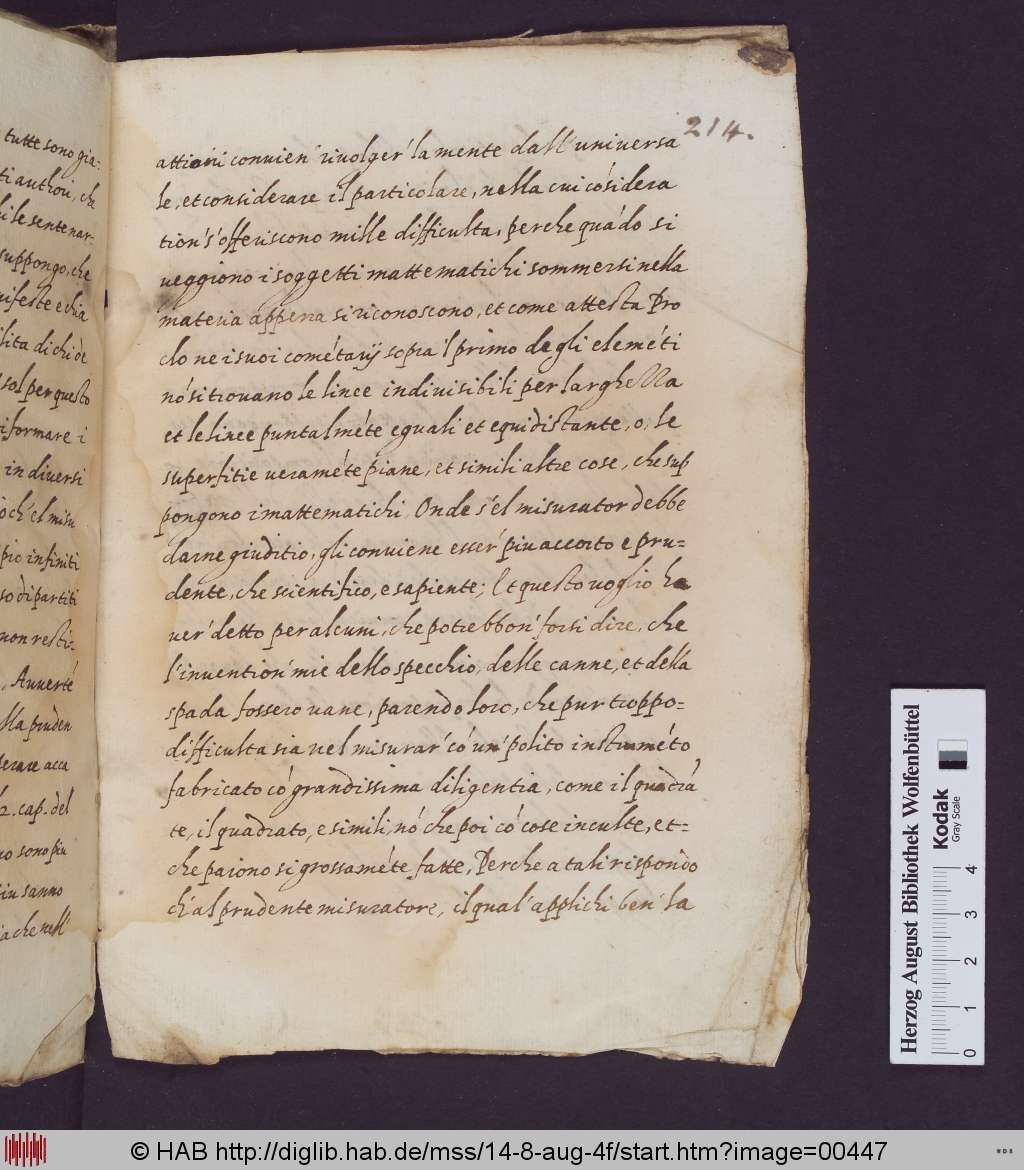 tutte sono gia=
ti authori, che
li le sentenar=
suppongo, che
nifeste e chia
lita di chi de
sol per questo
i formare i
in diversi
ch'el misu
pio infiniti
so di partiti
non resti=
. Avverté
lla pruden
derare acca
2. cap. del
no sono piu
piu sanno
ia che nell'
214.
attioni convien' rivolger' la mente dall'universa
le, et considerare il particolare, nella cui cósidera
tion' s'offeriscono mille difficulta, perche quádo si
veggiono i soggetti mattematichi sommersi nella
materia appena si riconoscono, et come attesta Pro
clo ne i suoi cométarij sopra 'l primo degli eleméti
nó si trovano le linee indivisibili per larghezza
et le linee puntalméte eguali et equidistante, o, le
superfitie veraméte piane, et simili altre cose, che sup
pongono i mattematichi. Onde s'el misurator debbe
darne giuditio, gli conviene esser' piu accorto e pru=
dente, che scientifico, e sapiente; Et questo voglio ha
ver' detto per alcuni, che potrebbon' forsi dire, che
l'invention' mie dello specchio, delle canne, et della
spada fossero vane, parendo loro, che pur troppo=
difficulta sia nel misurar' có un' polito instruméto
fabricato có grandissima diligentia, come il quadrá
te, il quadrato, e simili, nó che poi có cose inculte, et=
che paiono si grossaméte fatte, Perche a tali rispondo
ch'al prudente misuratore, il qual' applichi ben' la
Herzog August Bibliothek Wolfenbüttel
Kodak
Gray Scale
0 1 2 3 4
© HAB http://diglib.hab.de/mss/14-8-aug-4f/start.htm?image=00447